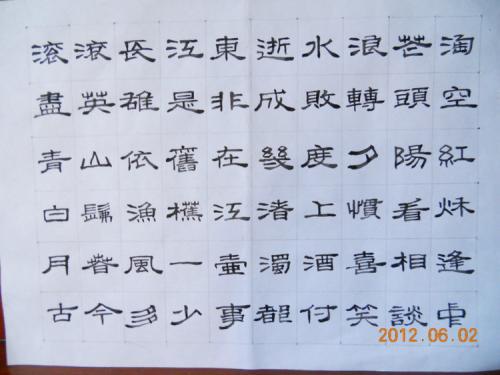 滾滾長江東逝水浪花淘
盡英雄是非成敗轉頭空
青山依舊在幾度夕陽紅
白髯漁樵江渚上慣看秋
月春風一壺濁酒喜相逢
古今多少事都付笑談中
2012.06.02